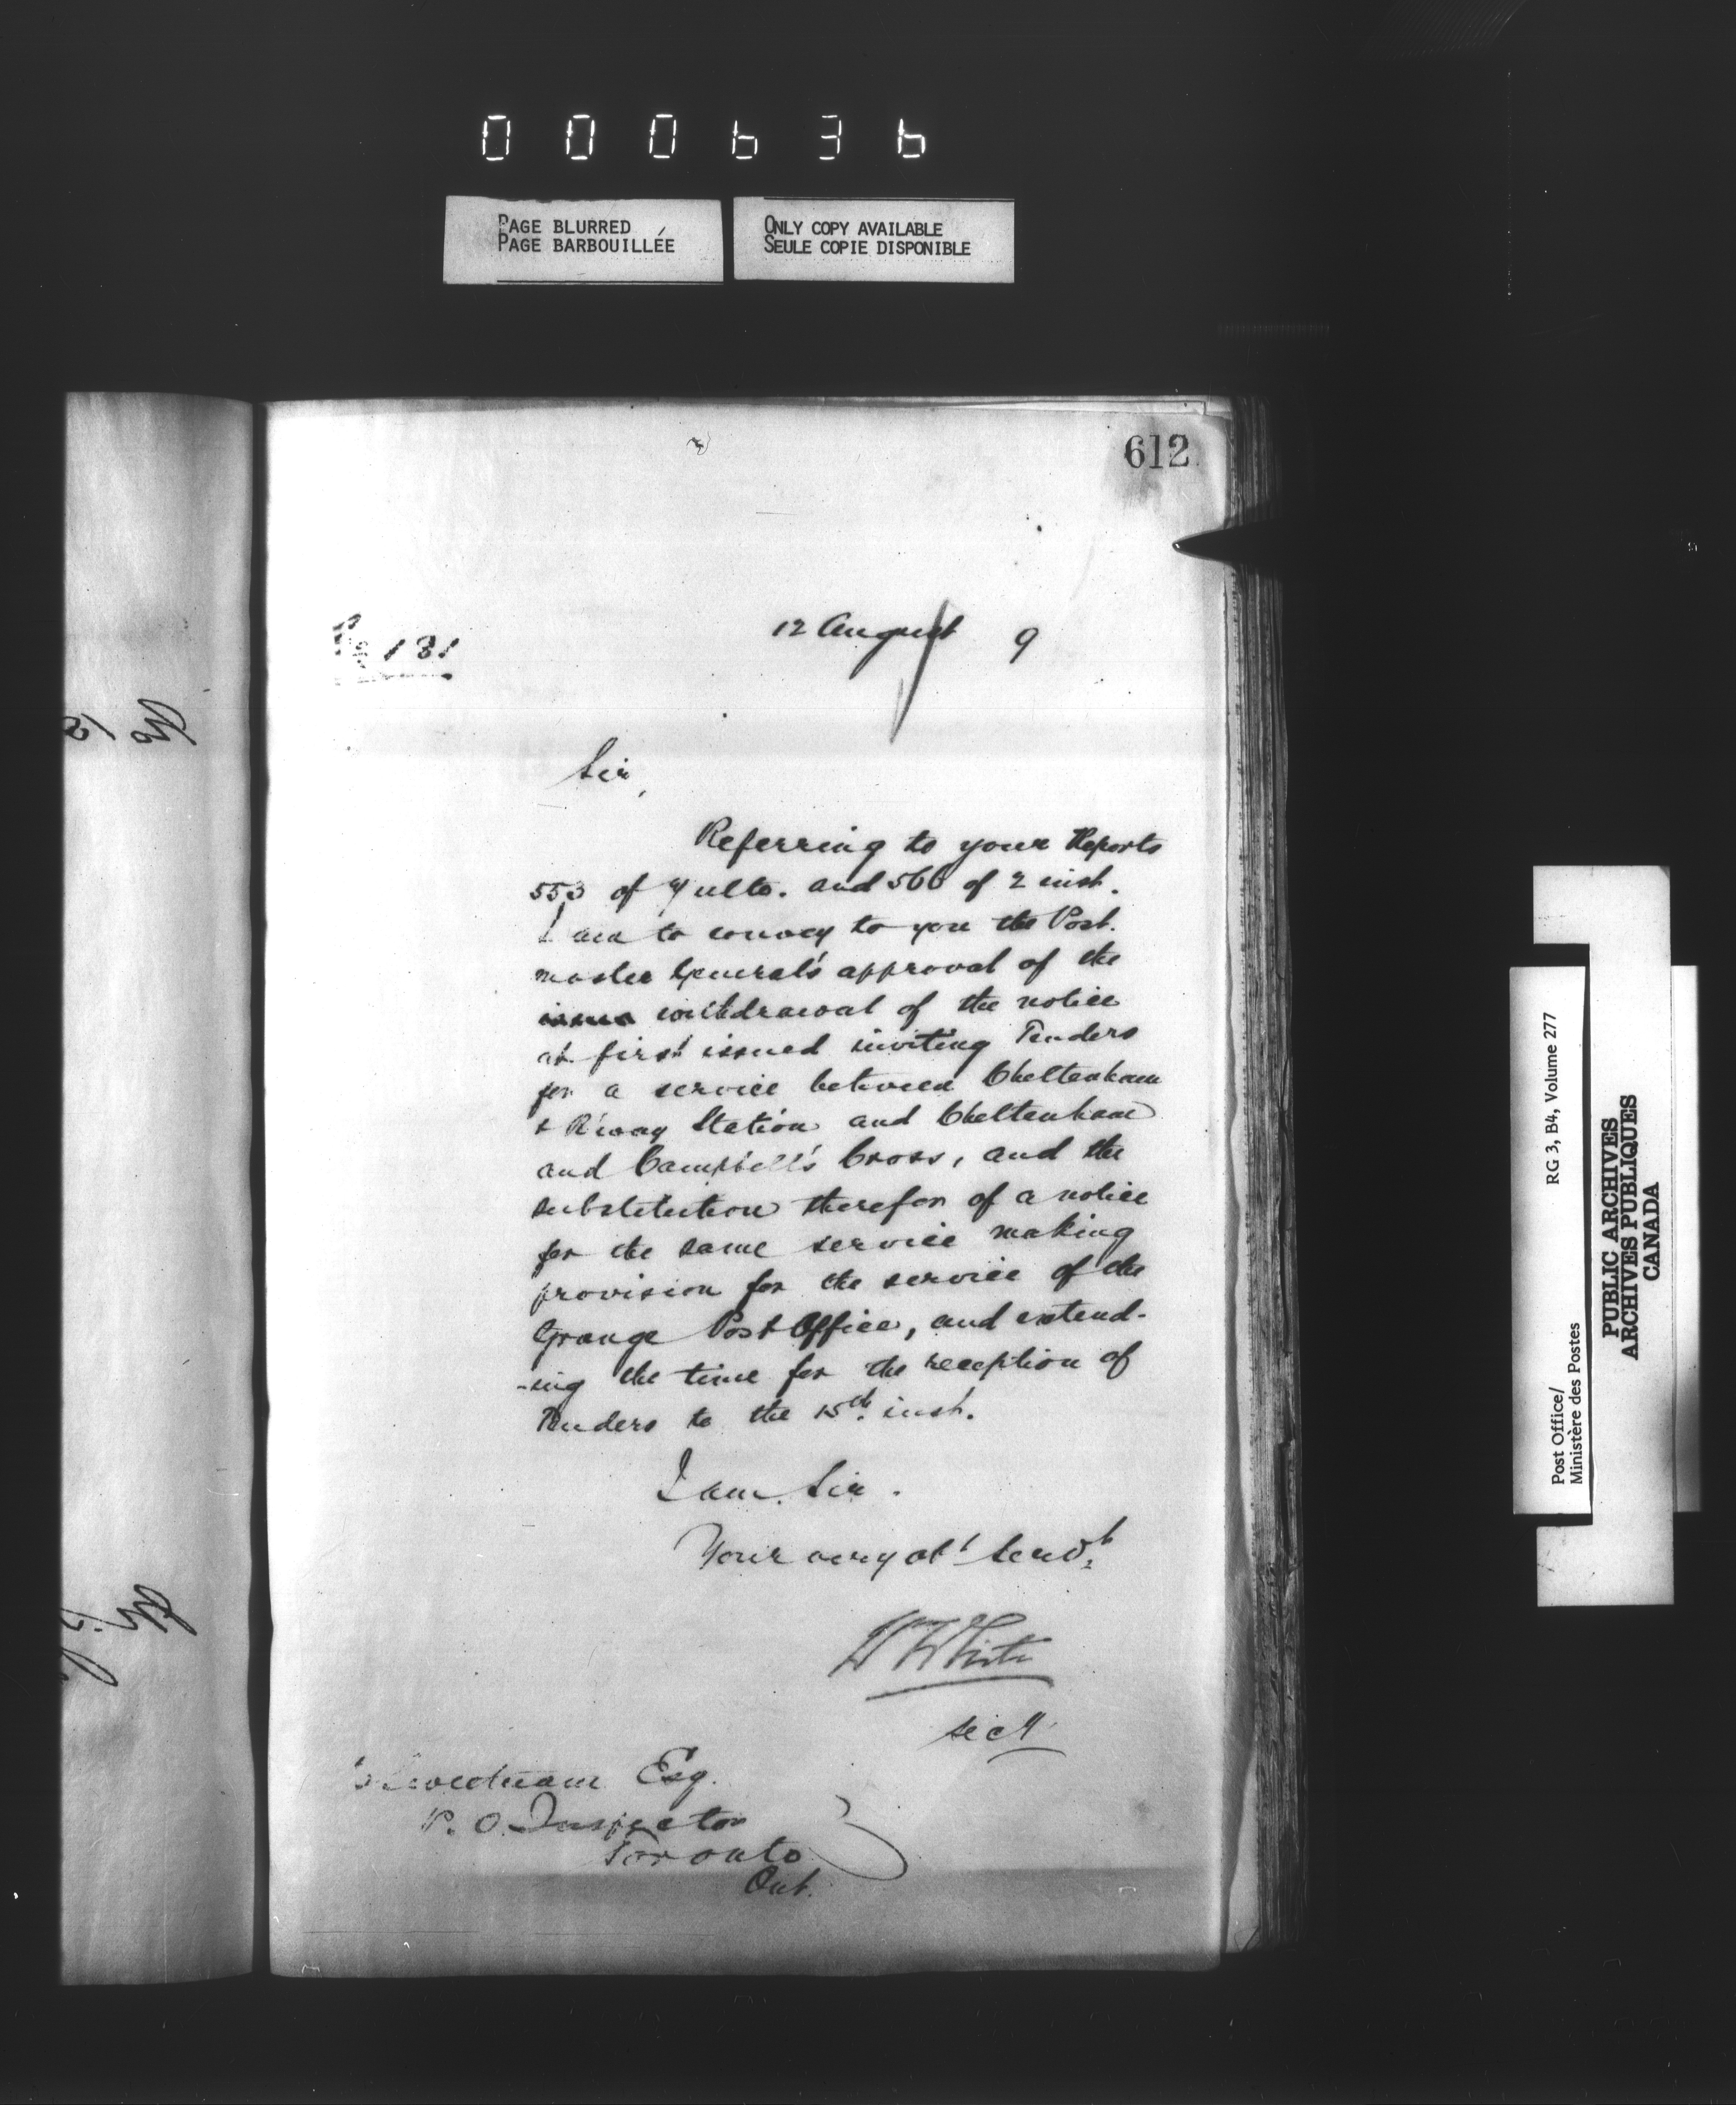 000636
PAGE BLURRED
PAGE BARBOUILLÉE
ONLY COPY AVAILABLE
SEULE COPIE DISPONIBLE
612
131
12 August 9
Sir,
Referring to your Reports
553 of ulto. and 566 of 2 inst.
I am to convey to you the Post.
master General's approval of the
withdrawal of the notice
at first issued inviting Tenders
for a service between Cheltenham
& R'way Station and Cheltenham
and Campbell's Cross, and the
substitution therefor of a notice
for the same service making
provision for the service of the
Grange Post Office, and extend-
-ing the time for the reception of
Tenders to the 15th. inst.
I am, Sir.
Your very obt Servt
W White
Secy
Esq.
P. O. Inspector
Toronto
Ont.
Post Office/
Ministère des Postes
RG 3, B4, Volume 277
PUBLIC ARCHIVES
ARCHIVES PUBLIQUES
CANADA